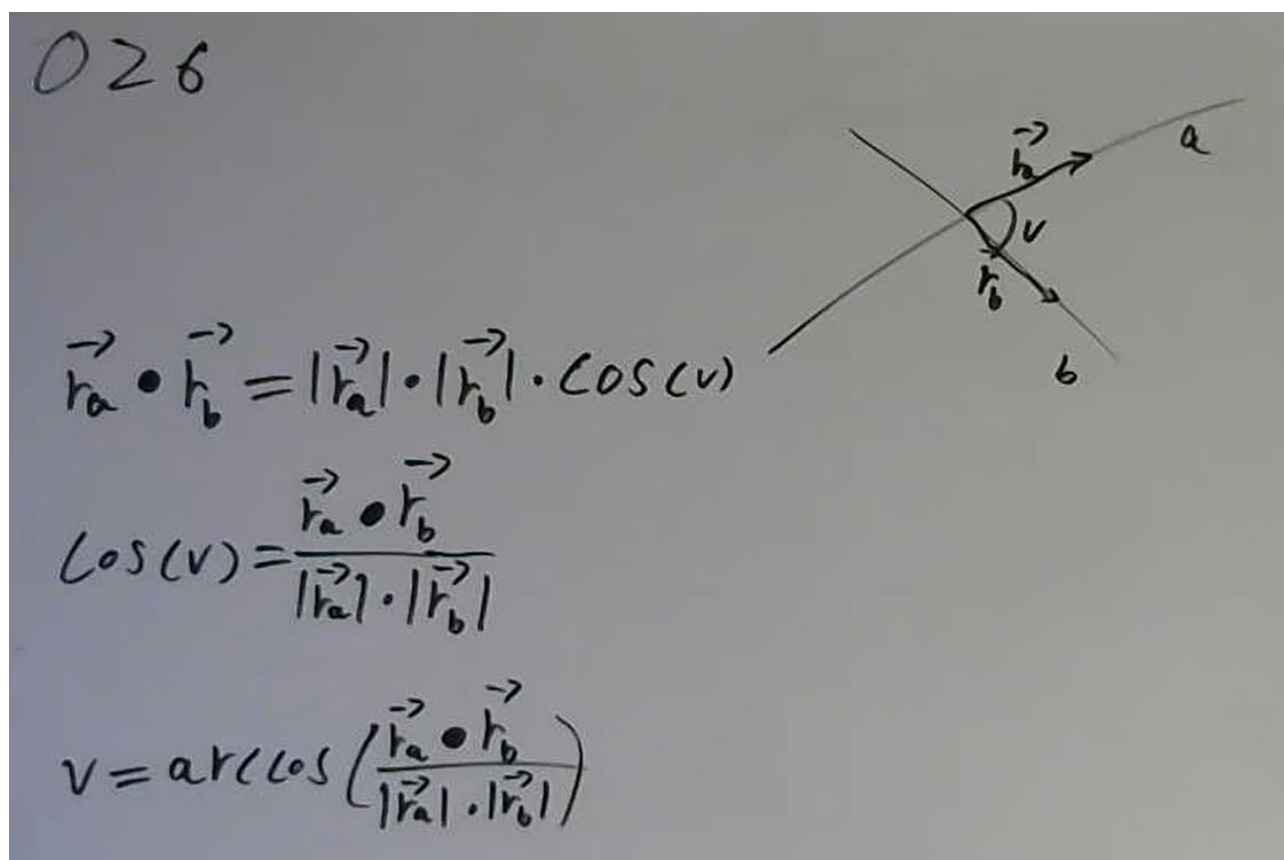 026
r⃗a
a
v
r⃗b
b
r⃗a • r⃗b = |r⃗a| · |r⃗b| · cos(v)
cos(v) = r⃗a • r⃗b / |r⃗a| · |r⃗b|
v = arccos(r⃗a • r⃗b / |r⃗a| · |r⃗b|)